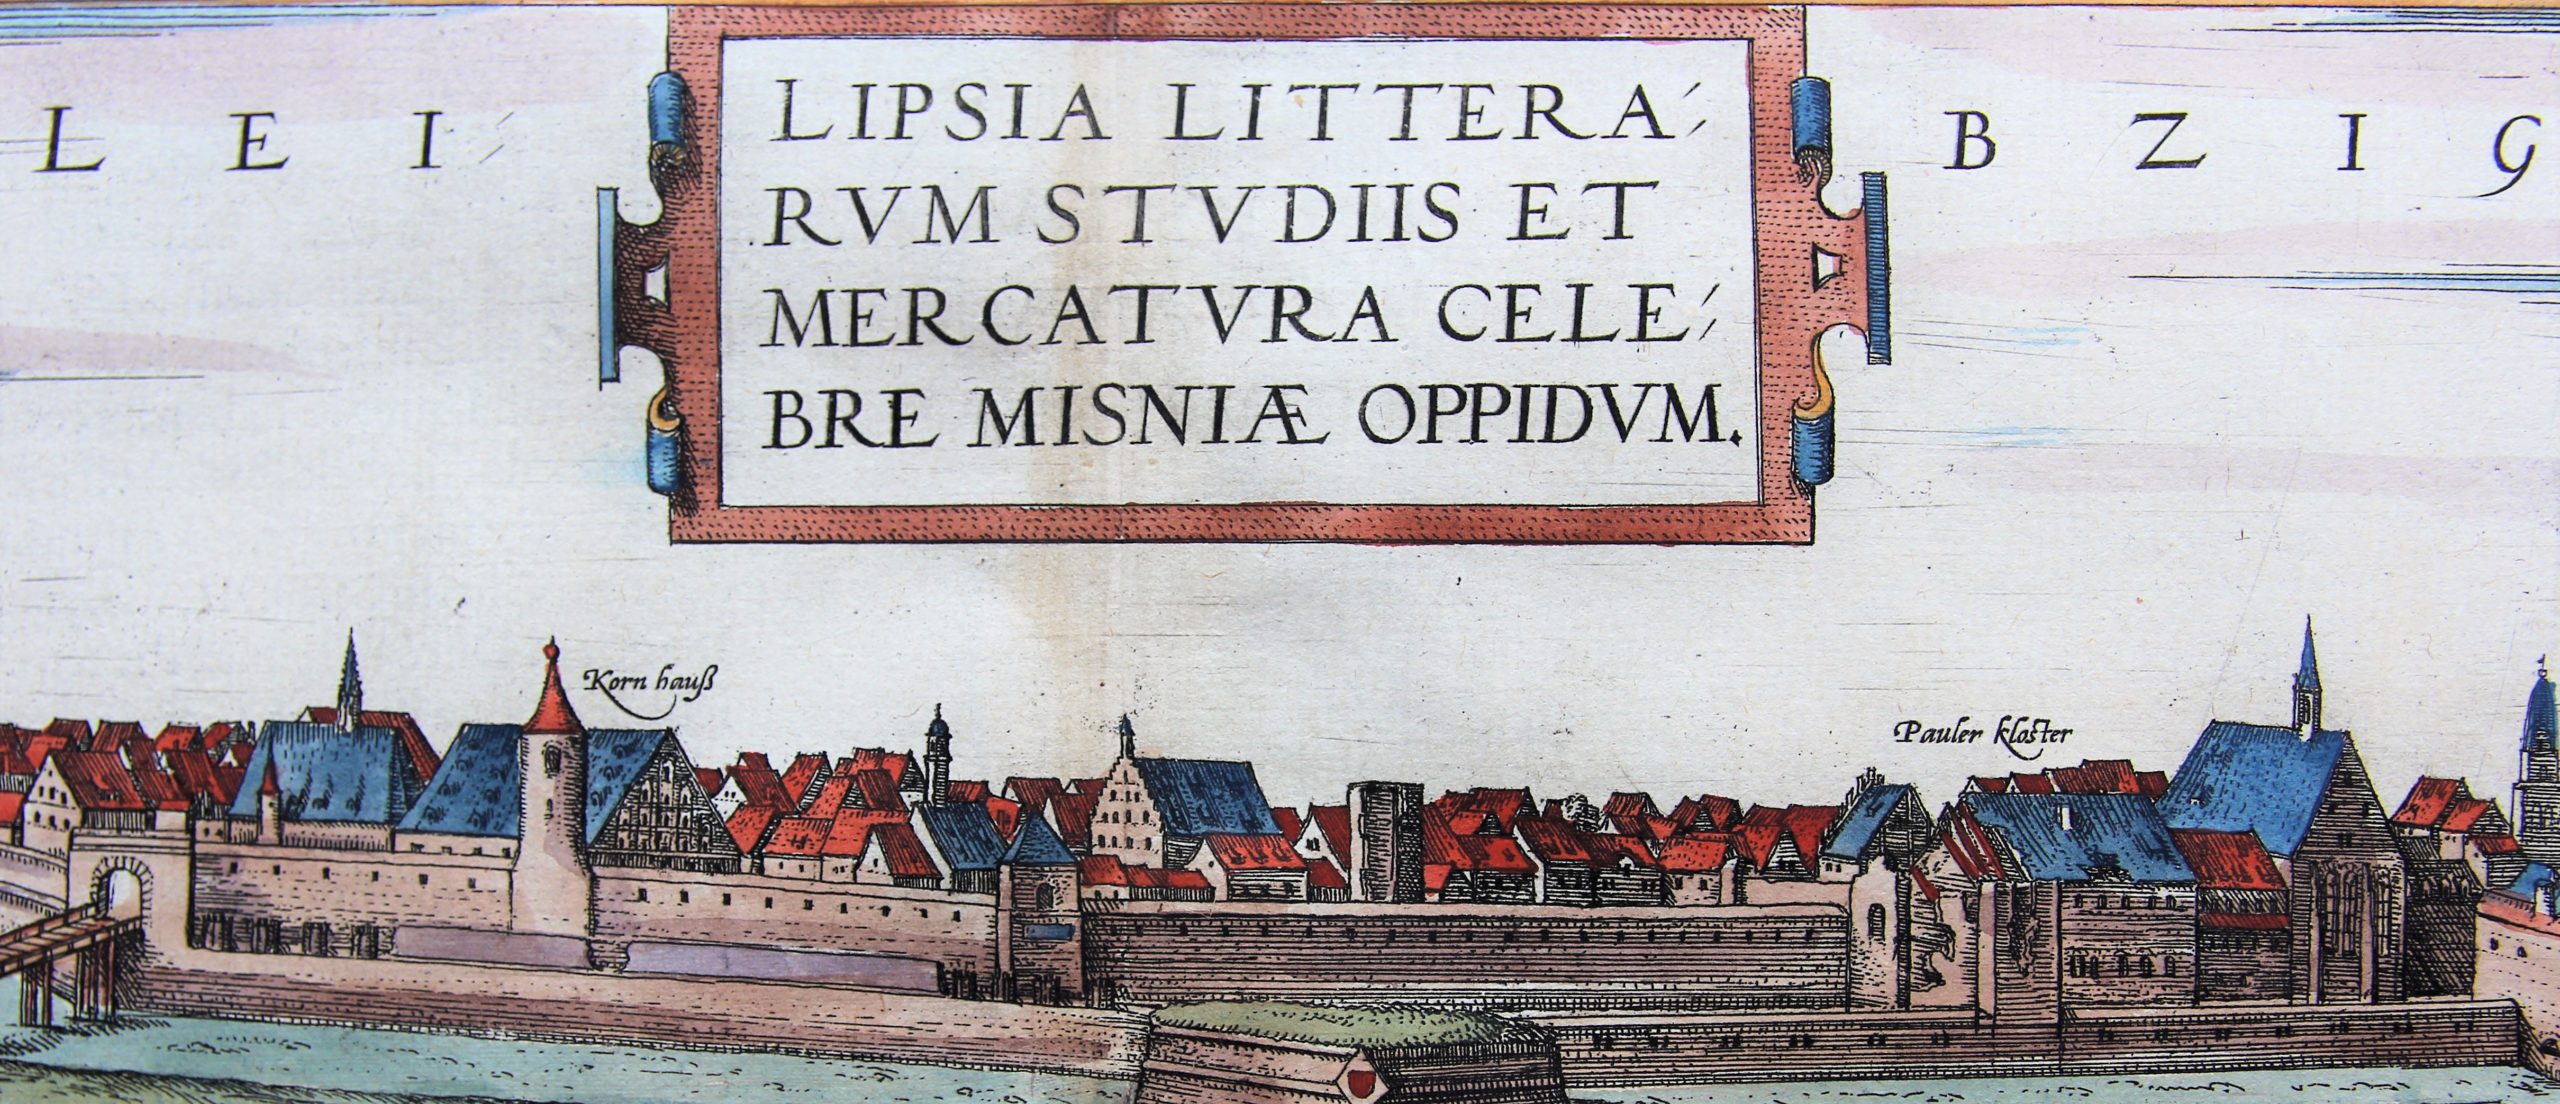 LEI⸗ BZIG
LIPSIA LITTERA⸗
RVM STVDIIS ET
MERCATVRA CELE⸗
BRE MISNIÆ OPPIDVM.
Korn hauß
Pauler kloster